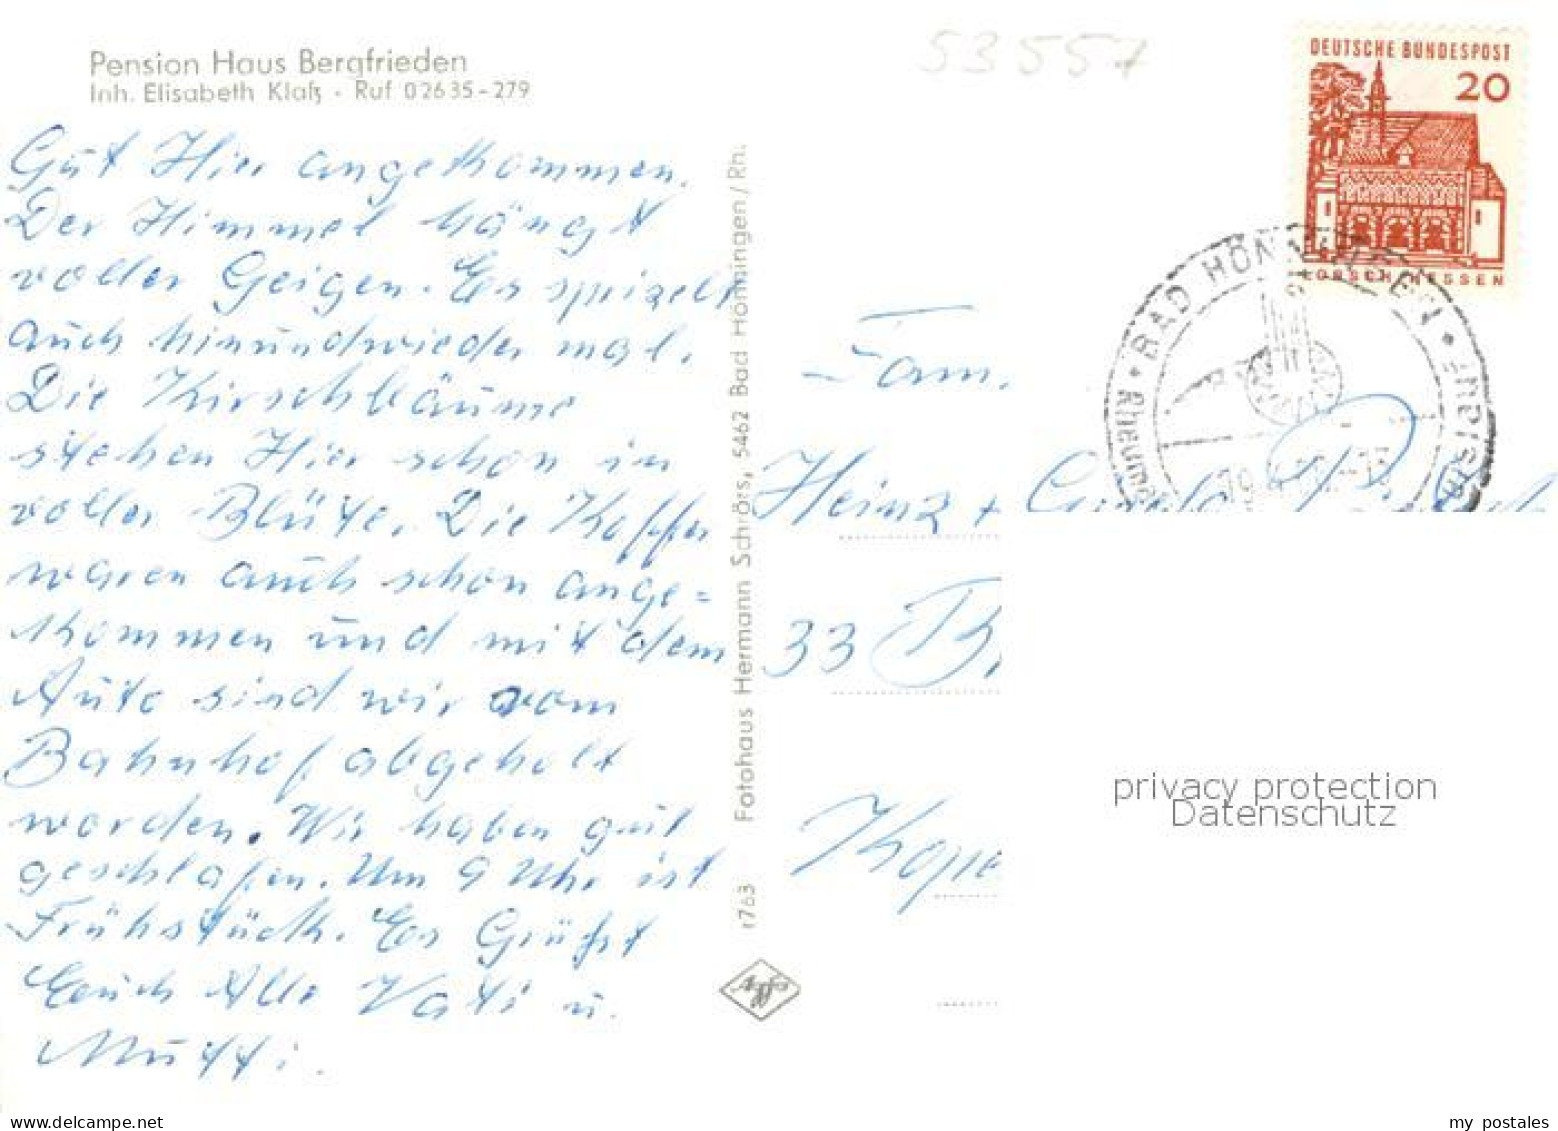 Pension Haus Bergfrieden
Inh. Elisabeth Klaß · Ruf 02635-279
53557
DEUTSCHE BUNDESPOST
20
LORSCH/HESSEN
BAD HÖNNINGEN
Gut Hier angekommen.
Der Himmel hängt
voller Geigen. Es sprizelt
auch hinundwieder mal.
Die Kirschbäume
stehen Hier schon in
voller Blüte. Die Koffer
waren auch schon ange=
kommen und mit dem
Auto sind wir vom
Bahnhof abgeholt
worden. Wir haben gut
geschlafen. Um 9 Uhr ist
Frühstück. Es Grüßt
Euch Alle Vati u.
Mutti.
Fotohaus Hermann Schrörs, 5462 Bad Hönningen/Rh.
r763
Agfa
Fam.
Heinz +
33 B
Kope
privacy protection
Datenschutz
my postales